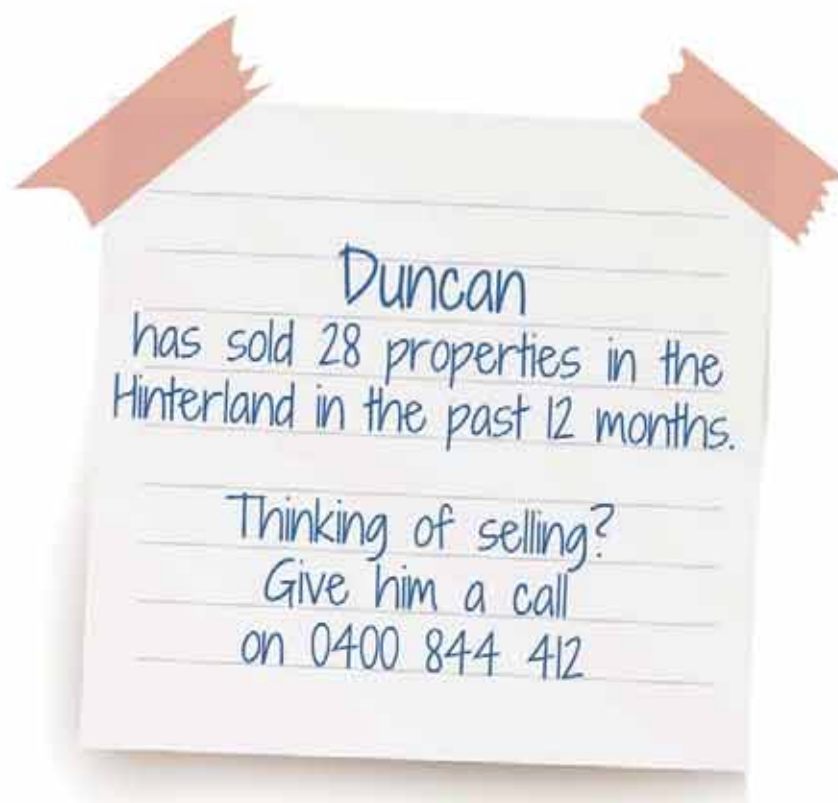 Duncan
has sold 28 properties in the
Hinterland in the past 12 months.
Thinking of selling?
Give him a call
on 0400 844 412